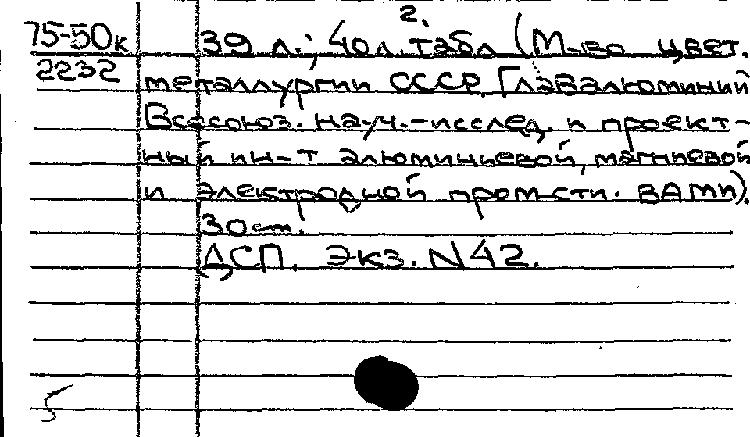 2.
75-50к 39 л.; 40 л. табл (М-во цвет.
2232 металлургии СССР. Главалюминий
Всесоюз. науч.-исслед. и проект-
ный ин-т алюминиевой, магниевой
и электродной пром-сти. ВАМИ).
30 см.
ДСП. Экз. N42.
5